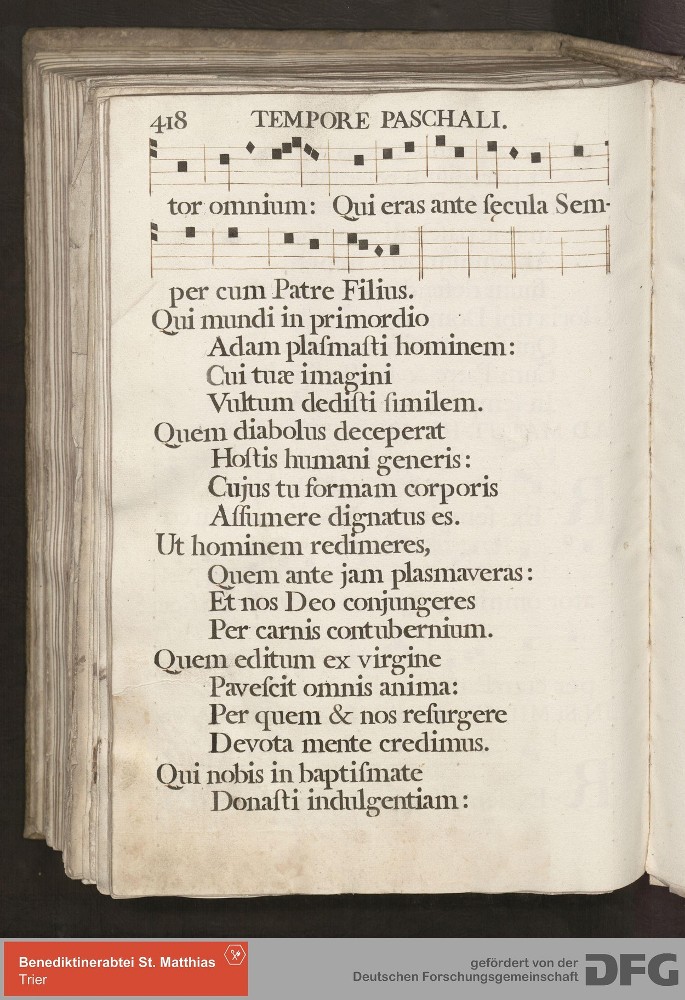 418 TEMPORE PASCHALI.
tor omnium: Qui eras ante ſęcula Sem-
per cum Patre Filius.
Qui mundi in primordio
Adam plaſmaſti hominem:
Cui tuæ imagini
Vultum dediſti ſimilem.
Quem diabolus deceperat
Hoſtis humani generis:
Cujus tu formam corporis
Aſſumere dignatus es.
Ut hominem redimeres,
Quem ante jam plasmaveras:
Et nos Deo conjungeres
Per carnis contubernium.
Quem editum ex virgine
Paveſcit omnis anima:
Per quem & nos reſurgere
Devota mente credimus.
Qui nobis in baptiſmate
Donaſti indulgentiam:
Benediktinerabtei St. Matthias
Trier
gefördert von der
Deutschen Forschungsgemeinschaft DFG